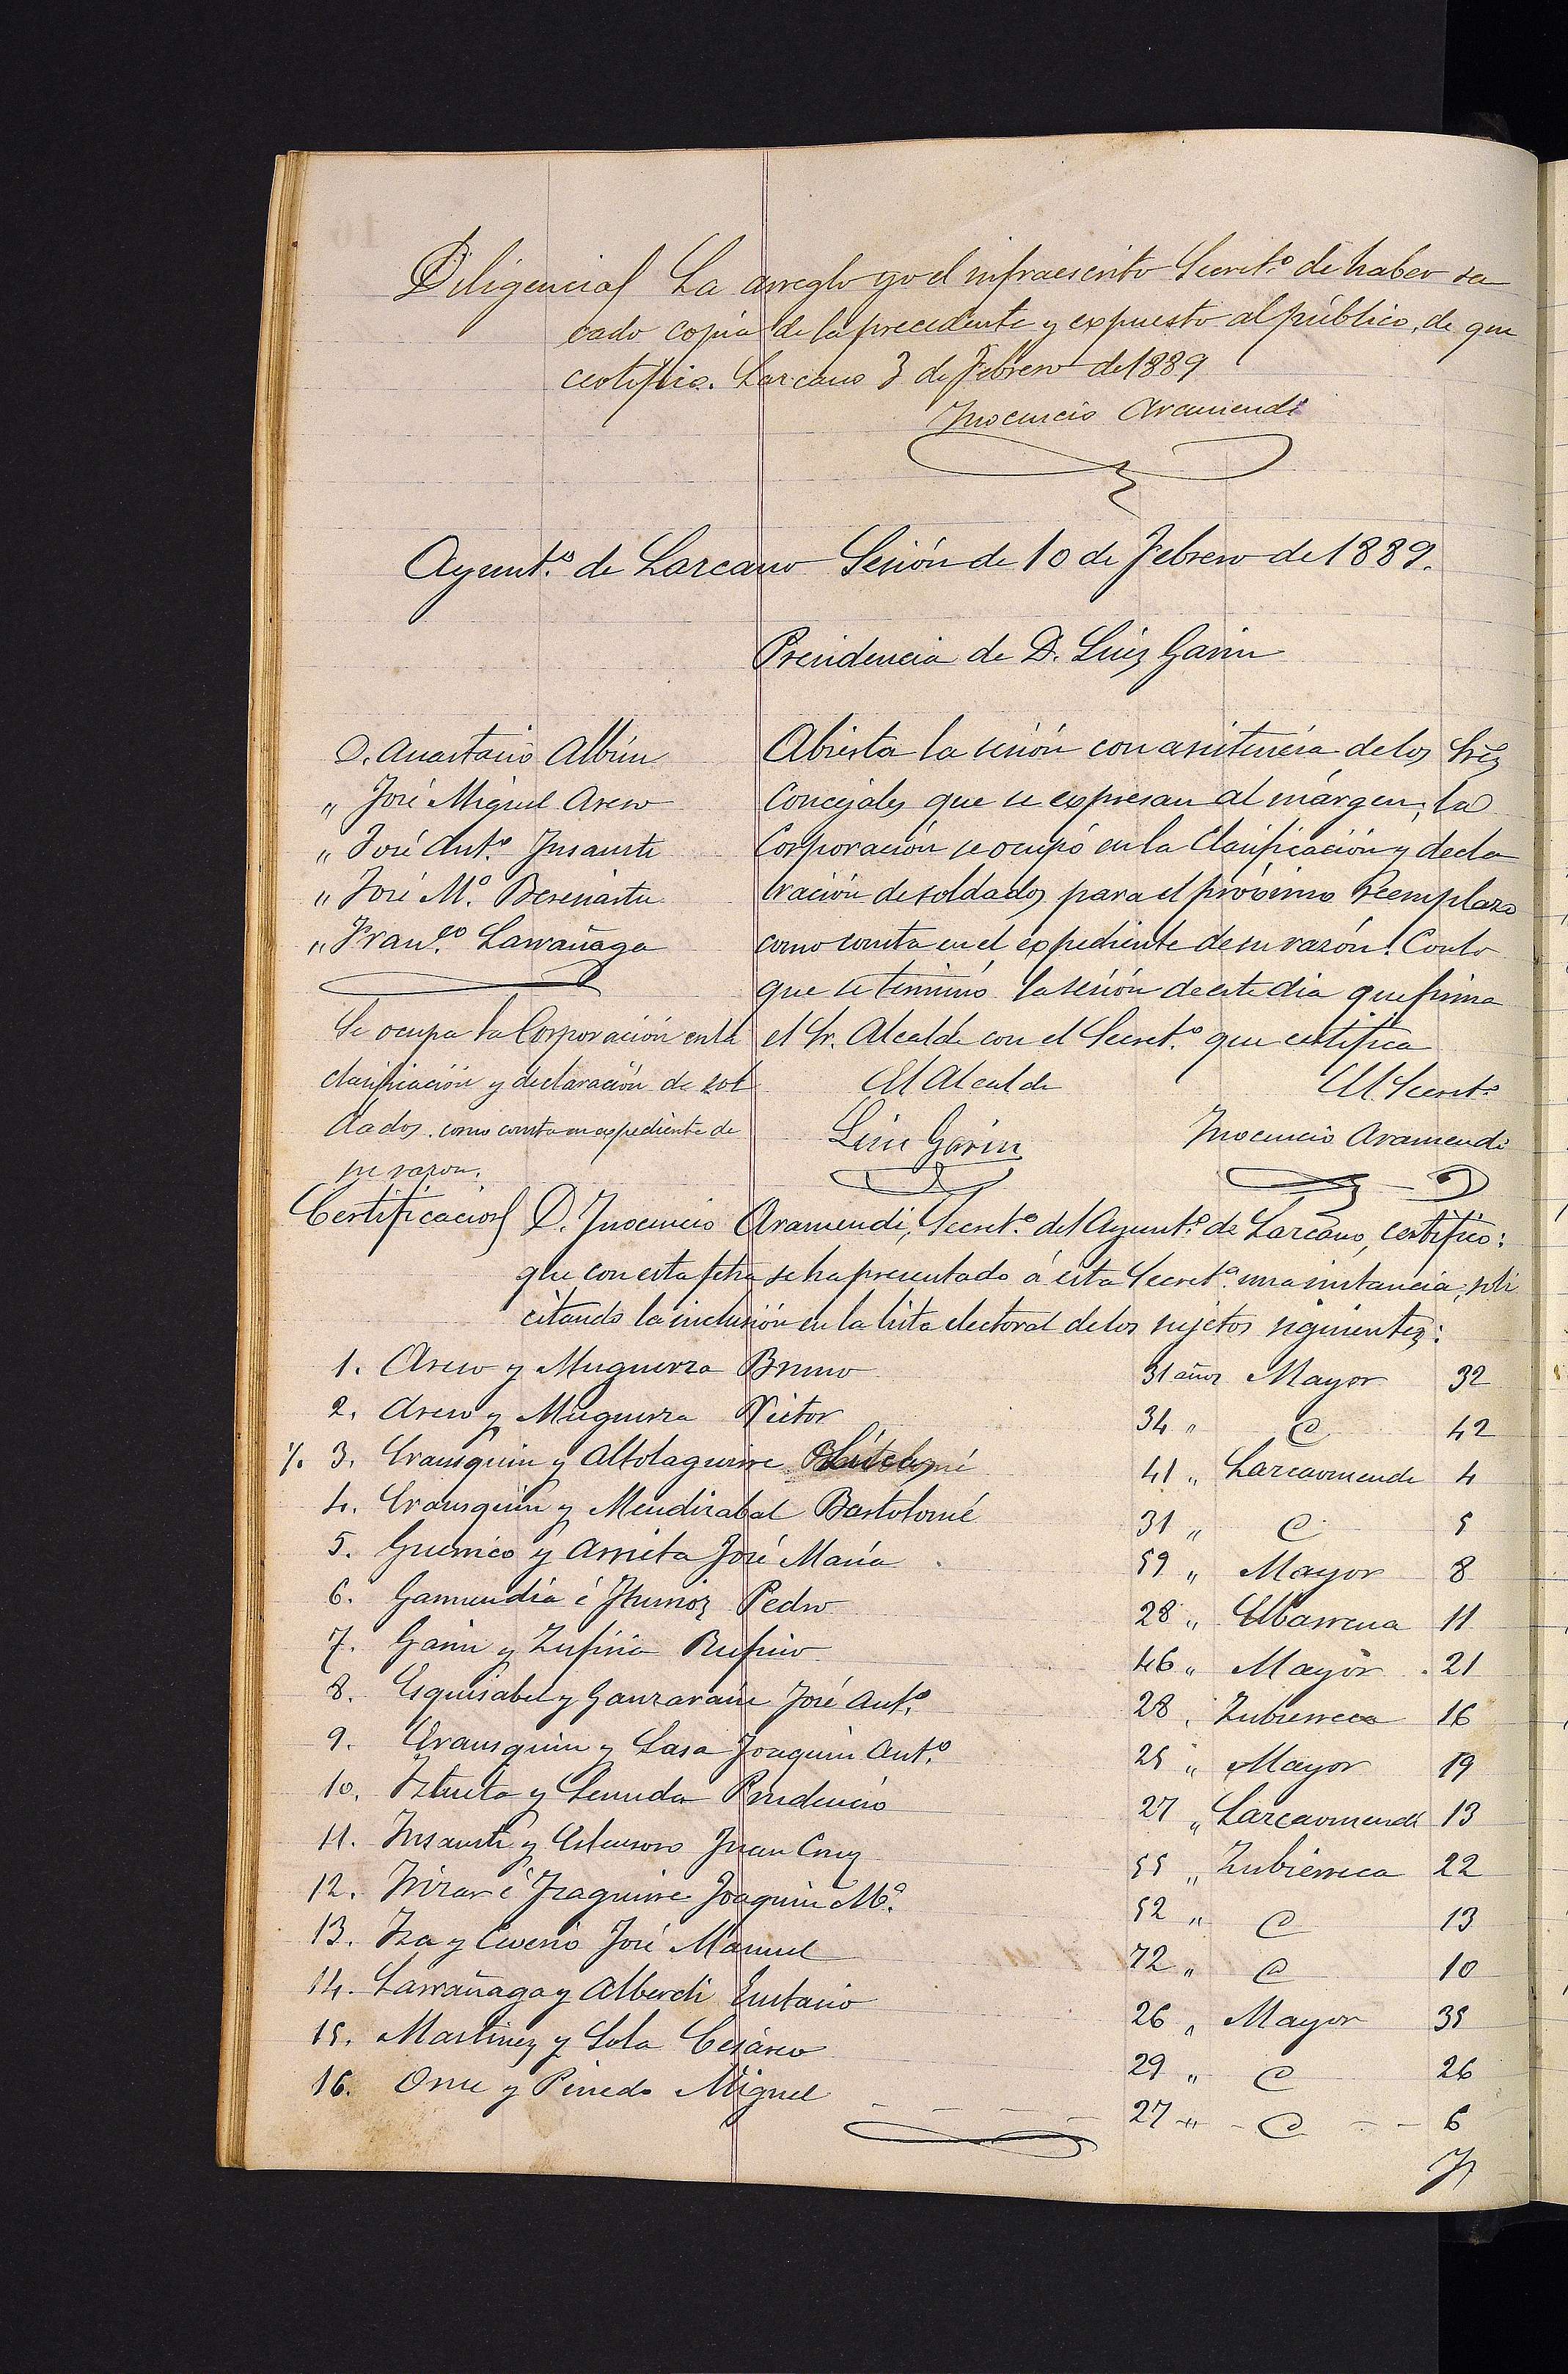 Diligencia La arreglo yo el infraescrito Secret.º de haber sa
cado copia de la precedente y expuesto al público, de que
certifico. Lazcano 3 de Febrero de 1889
Inocencio Aramendi
Ayunt.º de Lazcano Sesión de 10 de Febrero de 1889.
Presidencia de D. Luis Garin
D. Anastasio Albisu
" José Miguel Areso
" José Ant.º Insausti
" José M.ª Berasiartu
" Fran.co Larrañaga
Se ocupa la Corporación en la
clasificación y declaración de sol
dados, como consta en expediente de
su razon.
Abierta la sesión con asistencia de los Sres
Concejales que se expresan al márgen, la
Corporación se ocupó en la Clasificación y decla
ración de soldados para el próximo Reemplazo
como consta en el expediente de su razón. Con lo
que se terminó la sesión de este dia que firma
el Sr. Alcalde con el Secret.º que certifica
El Alcalde El Secret.º
Luis Garin Inocencio Aramendi
Certificacion D. Inocencio Aramendi, Secret.º del Ayunt.º de Lazcano, certifico:
que con esta fecha se ha presentado á esta Secret.ª una instancia, soli
citando la inclusión en la lista electoral de los sujetos siguientes:
1. Areso y Muguerza Bruno 31 años Mayor 32
2. Areso y Muguerza Victor 34 " @ 42
%. 3. Erausquin y Altolaguirre 41 " Lazcaomendi 4
4. Erausquin y Mendizabal Bartolomé 31 " @ 5
5. Guerrico y Arrieta José María 59 " Mayor 8
6. Garmendia é Iturrioz Pedro 28 " Elbarrena 11
7. Garin y Zufiria Rufino 46 " Mayor 21
8. Esquisabel y Ganzarain José Ant.º 28 " Zubierreca 16
9. Erausquin y Lasa Joaquin Ant.º 25 " Mayor 19
10. Iztueta y Prudencio 27 " Lazcaomendi 13
11. Insausti y Juan Cruz 55 " Zubierreca 22
12. Irizar é Izaguirre Joaquin M.ª 52 " @ 13
13. Iza y José Manuel 72 " @ 10
14. Larrañaga y Alberdi Eustasio 26 " Mayor 35
15. Martinez y Sola Cesáreo 29 " @ 26
16. Orue y Pinedo Miguel 27 " @ 6